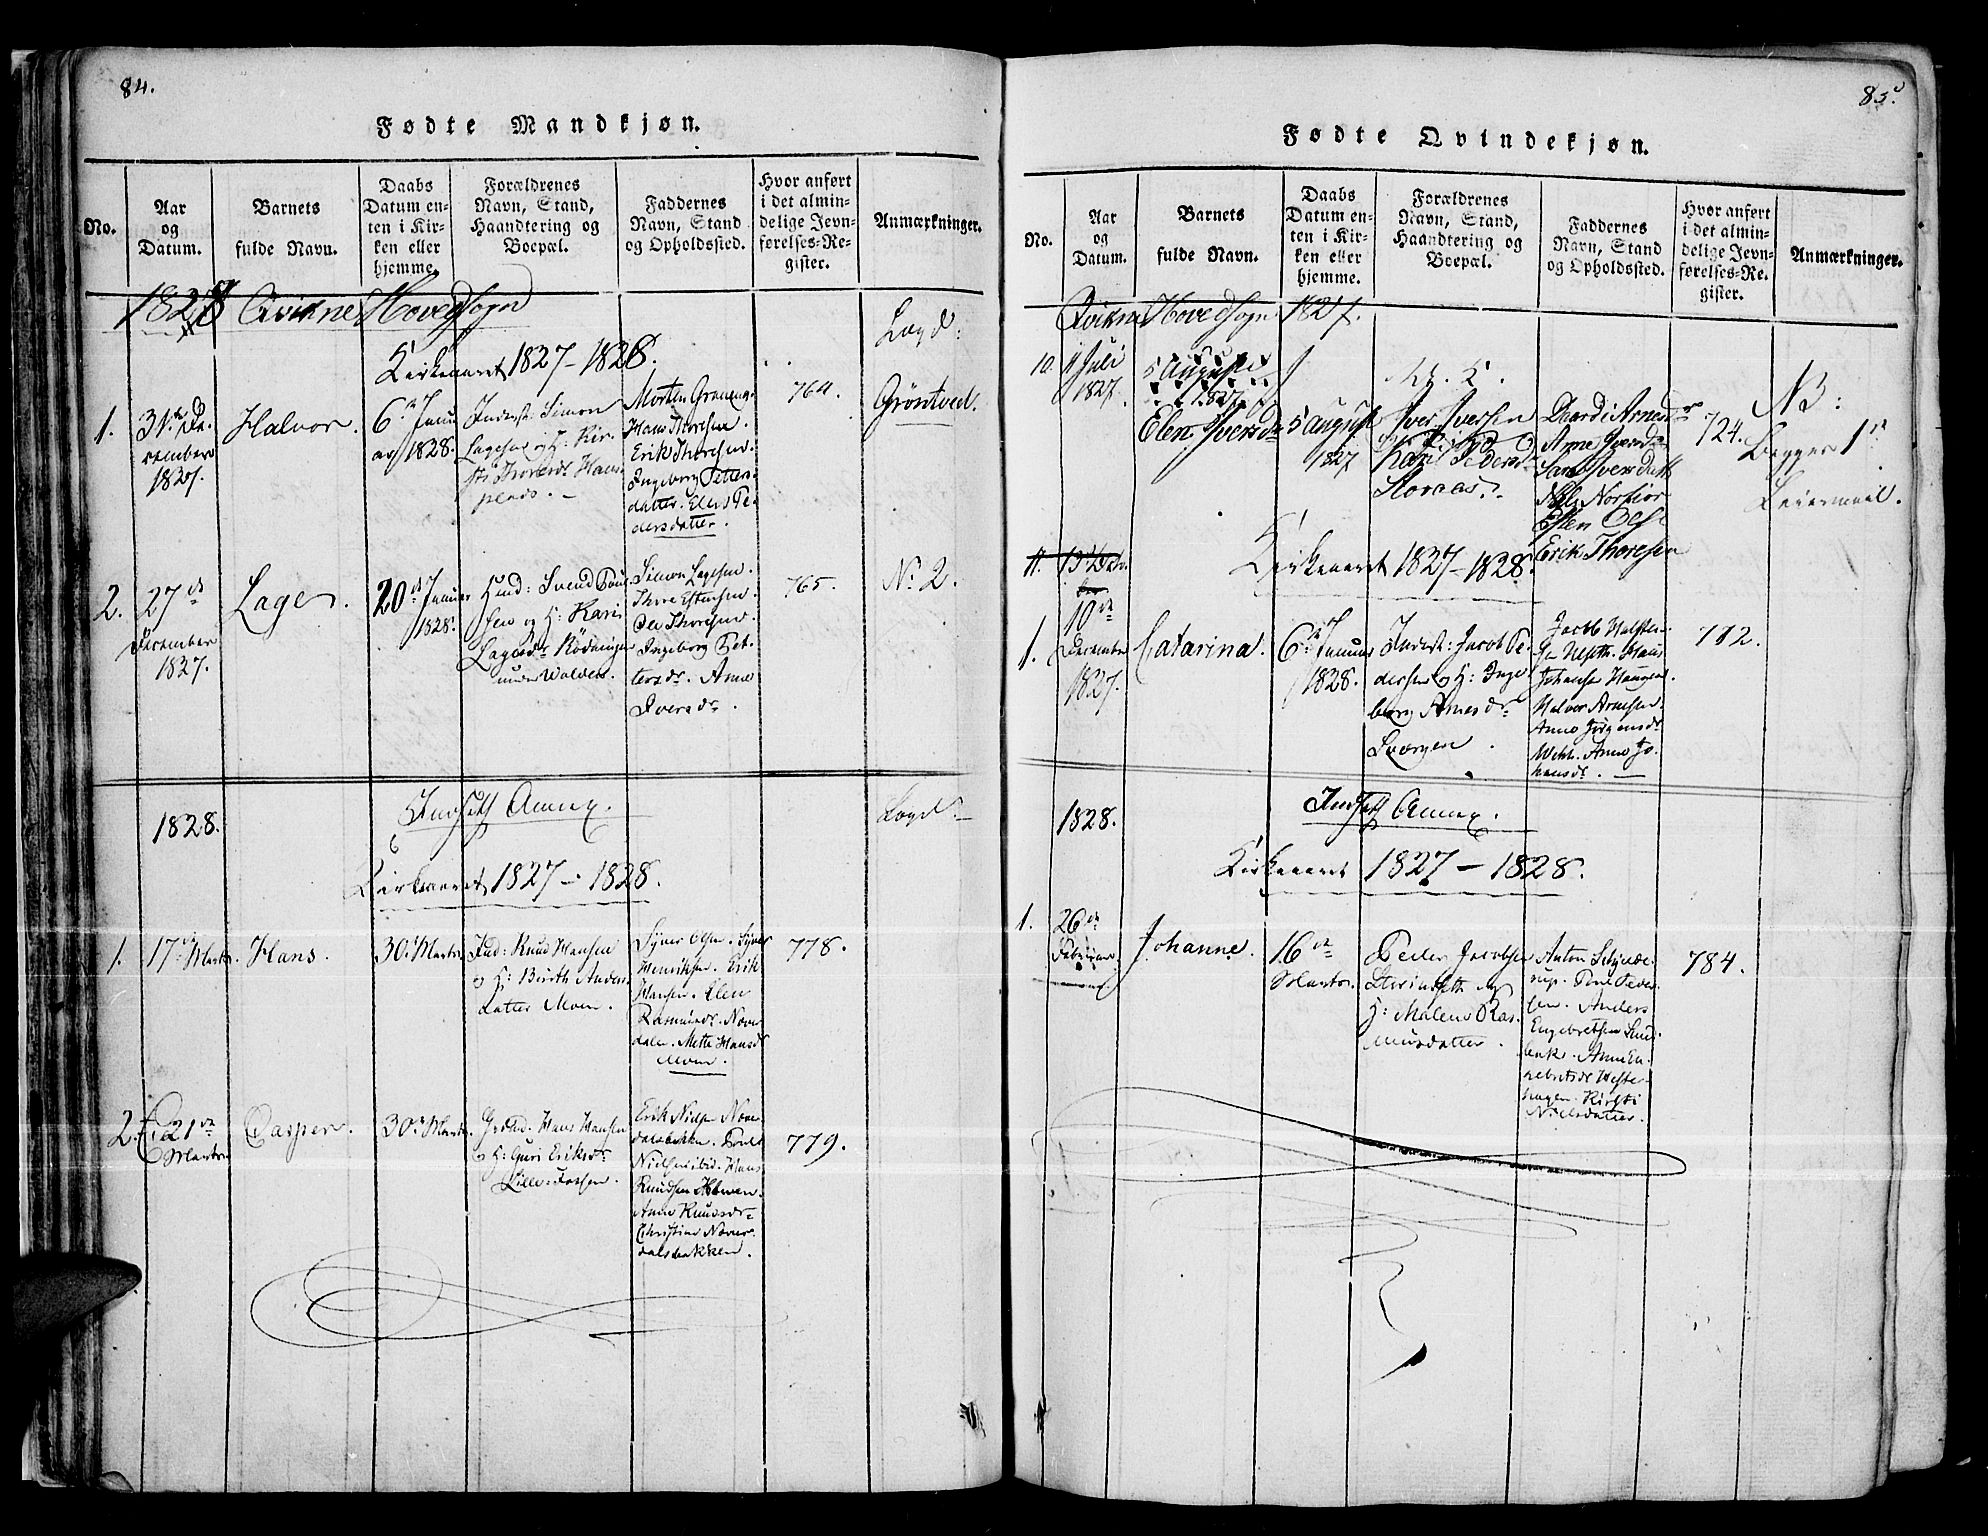 84.
Fødte Mandkjøn.
No.
Aar
og
Datum.
Barnets
fulde Navn.
Daabs
Datum en-
ten i Kir-
ken eller
hjemme.
Forældrenes
Navn, Stand,
Haandtering og
Boepæl.
Faddernes
Navn, Stand
og Opholdssted.
Hvor anført
i det almin-
delige Jevn-
førelses-Re-
gister.
Anmærkninger.
Qvikne Hovedsogn
Kirkeaaret 1827-1828.
1.
December
1827.
Halvor.
6te Janu
ar 1828.
Inderst: Simon
Lagesen og H: Kir-
sti Thoresdr Hans
plads.
Morten
Hans Thoresen.
Erik Thoresen.
Ingeborg Petters
datter. Elen Pe
dersdatter.
764.
Grøntved.
2.
27de
December
1827.
Lage.
20de Januar
1828.
Huusd: Svend Poul
sen og H: Kari
Lagesdr Rödninger
under Wolden.
Simon Lagesen.
Thore Estensen.
Ole Thoresen.
Ingeborg Pet-
tersdr. Anne
Iversdr.
765.
No 2.
1828.
Indseth Annex.
Kirkeaaret 1827 - 1828.
1.
17de Marts.
Hans.
30. Marts
Knud Hansen
og H: Birith Anders
datter Moen.
Syver Olsen. Syver
Henriksen. Erik
Hansen. Elen
Rasmusdr. Næver
dalen. Mette Hansdr
Moen.
778.
2.
21de
Marts
Casper.
30. Marts.
Hans Hansen
og H: Guri Eriksdr
Lille-Fossen.
Erik Nielsen Næver
dalsbakken. Poul
Nielsen ibid. Hans
Knudsen Moen.
Anne Knudsdr
Christine Næver
dalsbakken.
779.
85.
Fødte Qvindekjøn.
No.
Aar
og
Datum.
Barnets
fulde Navn.
Daabs
Datum en-
ten i Kir-
ken eller
hjemme.
Forældrenes
Navn, Stand,
Haandtering og
Boepæl.
Faddernes
Navn, Stand
og Opholdssted.
Hvor anført
i det almin-
delige Jevn-
førelses-Re-
gister.
Anmærkninger.
Qvikne Hovedsogn 1827.
10.
Juli
1827.
5 August
1827
Elen Iversdr
5 August
1827
Iver Iversen
Kari Pedersdr
Storaas.
Arne Iversen
Iversdatt
Nils
Esten Olsen
Erik Thoresen
724.
NB:
Begges 1ste
Leiermaal.
11.
Kirkeaaret 1827-1828.
1.
10de
December
1827.
Catarina.
6te Januar
1828.
Inderst: Jacob Pe-
dersen og H: Inge
borg Arnesdr
Hans
Johansen Haugen.
Halvor Arnesen.
Anne Jörgensdr
Anne Jo-
hansdr.
782.
1828.
Indseth Annex.
Kirkeaaret 1827 - 1828.
1.
26de
Februar
Johanne.
16de
Marts.
Peder Jacobsen
og
H: Malene Ras-
musdatter.
Anton Schjelde-
rup. Poul Peder
sen. Anders
Engebretsen
Anne En-
gebretsdr Wester-
hagen. Kirsti
Nielsdatter.
784.